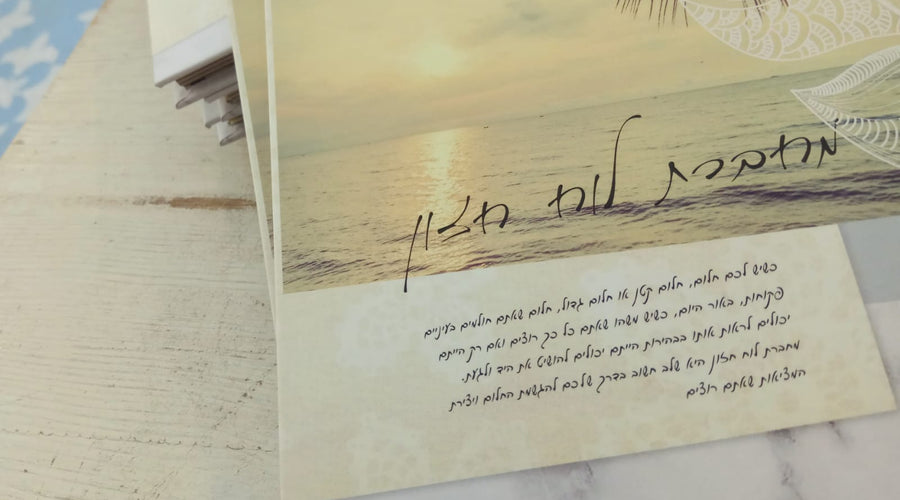 מחברת לוח חזון
כשיש לכם חלום, חלום קטן או חלום גדול, חלום שאתם חולמים בעיניים
פקוחות, באור היום, כשיש משהו שאתם כל כך רוצים ואם רק הייתם
יכולים לראות אותו בבהירות הייתם יכולים להושיט את היד ולגעת.
מחברת לוח חזון היא שלב חשוב בדרך שלכם להגשמת החלום ויצירת
המציאות שאתם רוצים